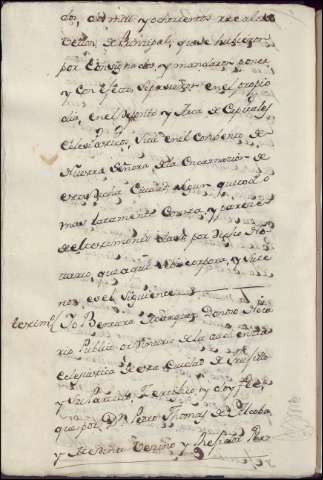 dos, dos mil y ochocientos reales de
vellon de Principal, que se hubiesen
por Consignados, y mandaron poner
y con efecto se pusieron en el propio
dia, en el Deposito y Arca de Capitales
Eclesiasticos, sita en el Combento de
Nuestra Señora de la Encarnacion de
esta dicha Ciudad segun que todo
mas latamente Consta, y parece
del testimonio dado por dicho No-
tario, que aqui se incorpora, y su te-
nor es el siguiente
testim.º Yo Bentura Rodriguez Donoso Nota-
rio Publico de la audiencia
eclesiastica de esta Ciudad de Truxillo
y su Partido, Zertifico y doy fee,
que por Dn. Pedro Thomas de
Vezino y Rexidor Per-